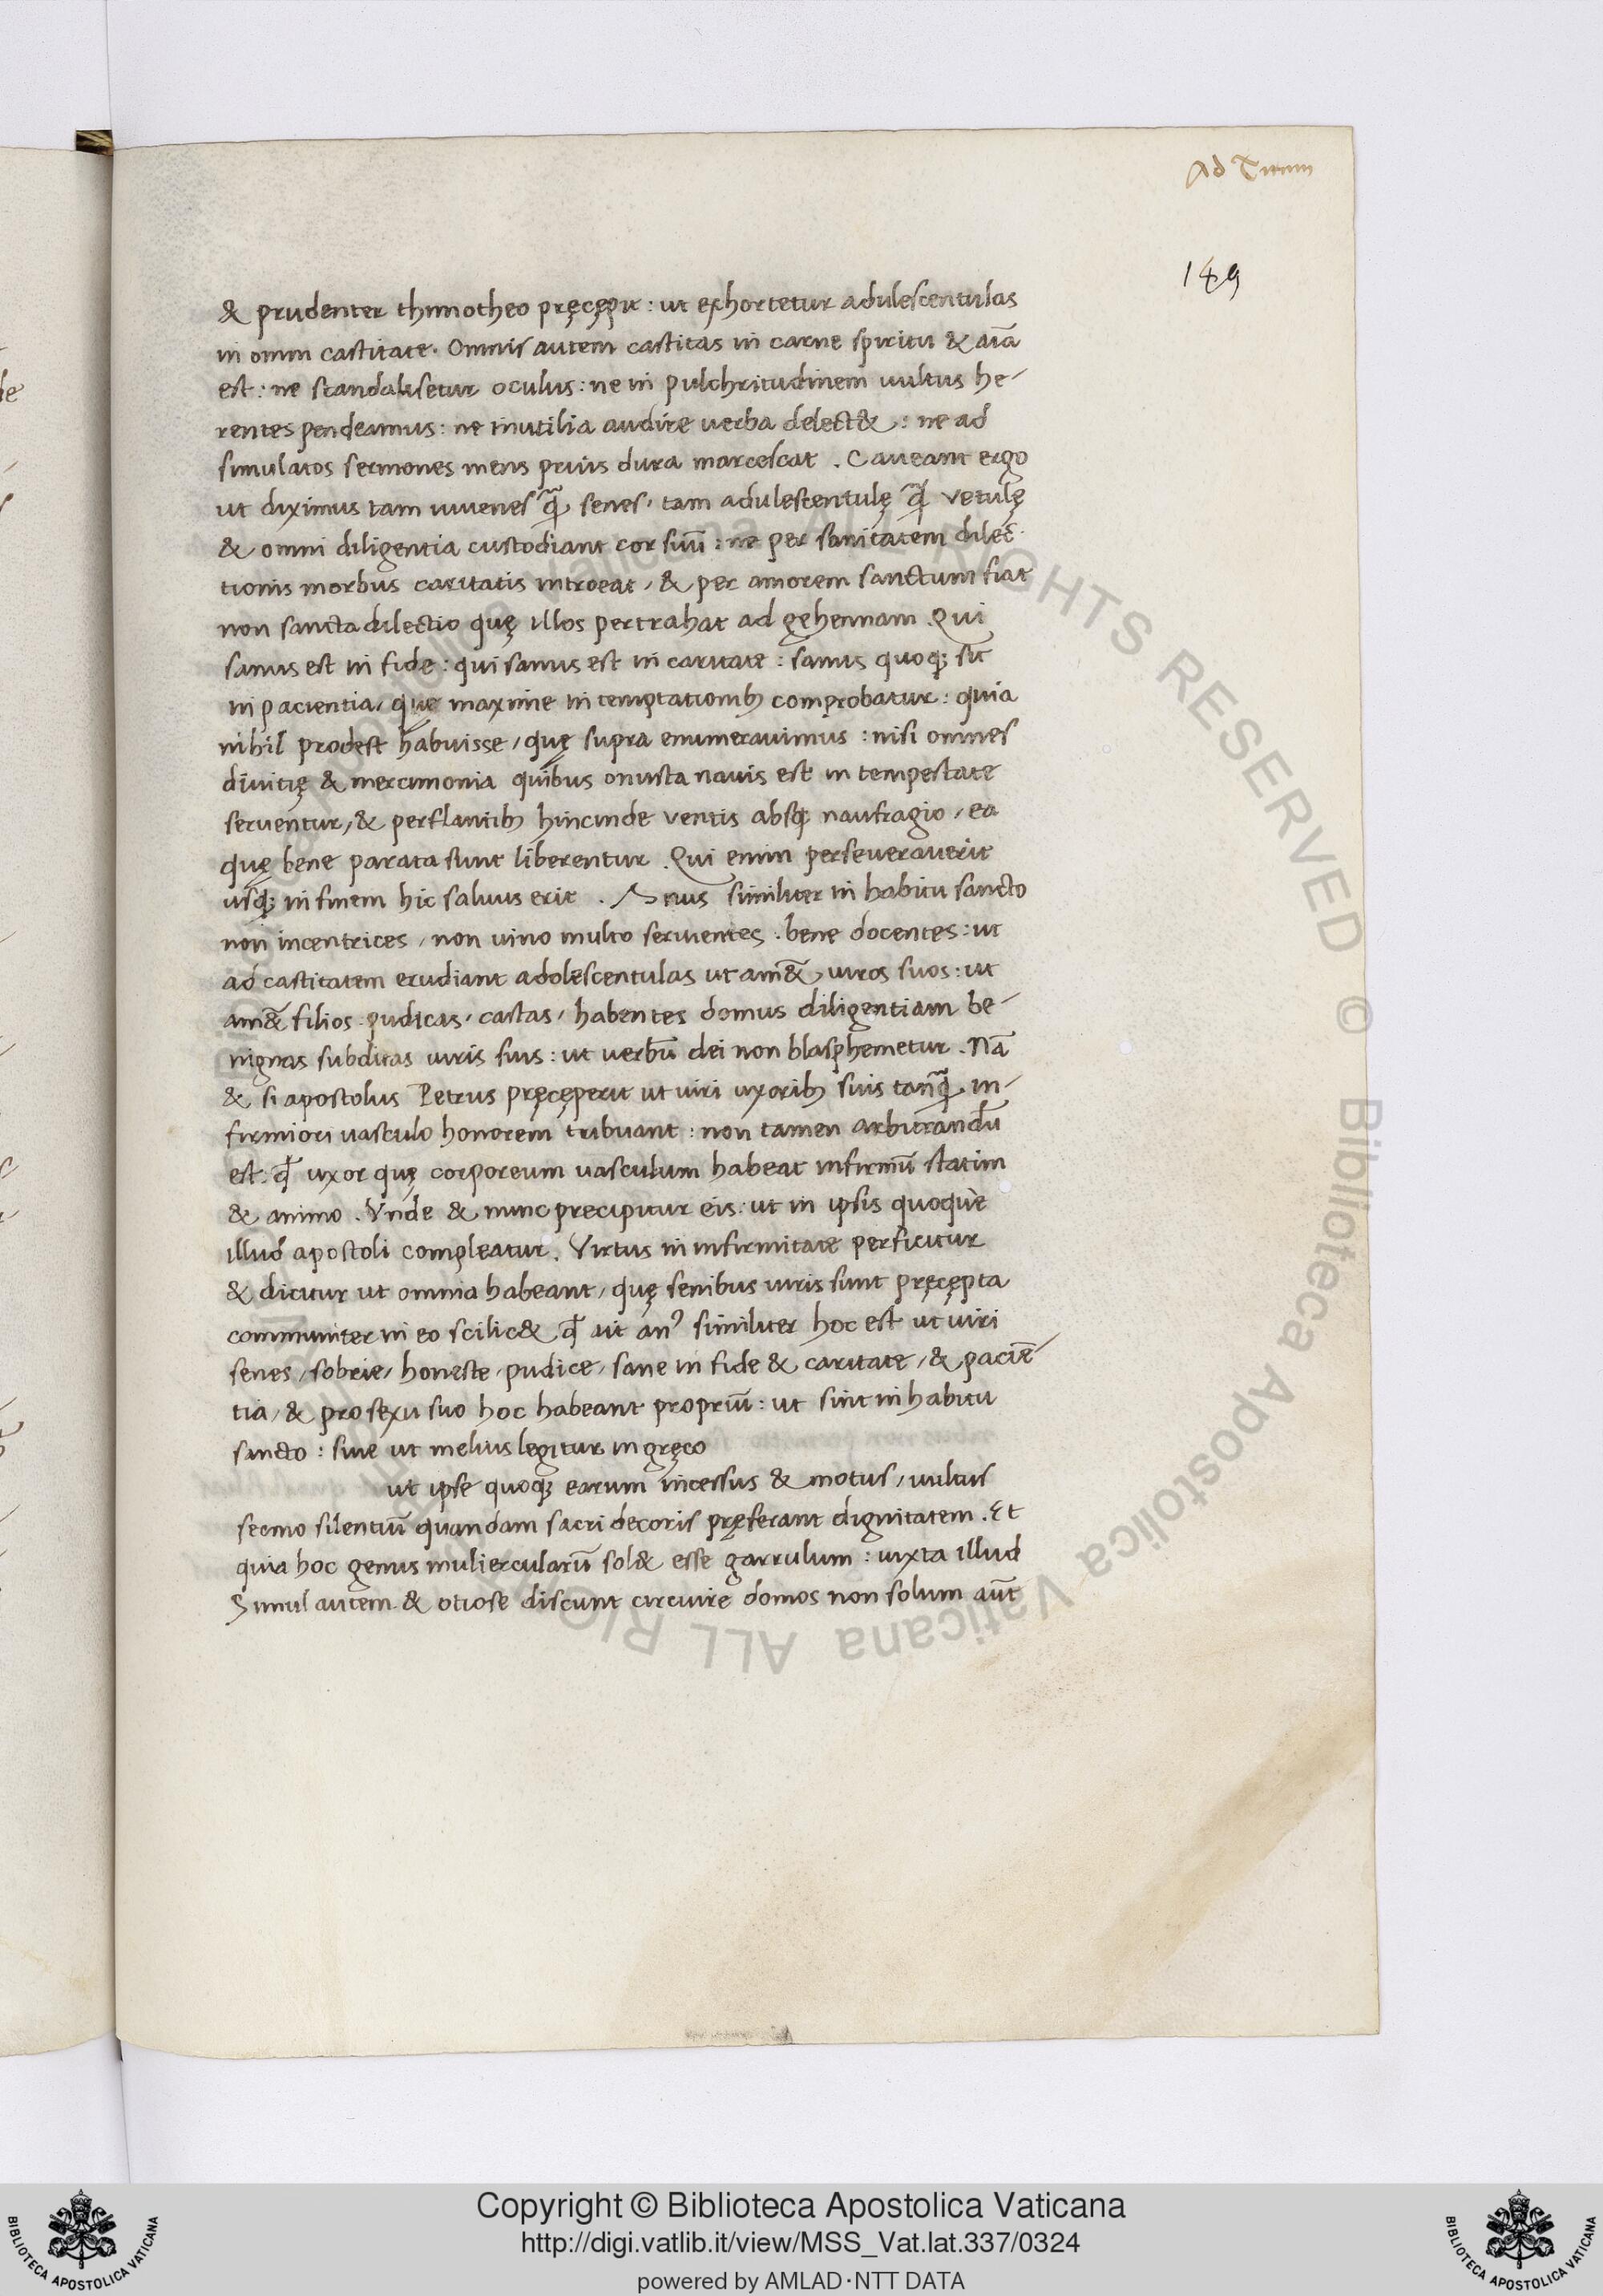 Ad Titum
149
& prudenter thimotheo pręcępit : ut exhortetur adulescentulas
in omni castitate. Omnis autem castitas in carne spiritu & aīa
est : ne scandalisetur oculus : ne in pulchritudinem uultus he-
rentes pendeamus : ne inutilia audire verba delect& : ne ad
simulatos sermones mens prius dura marcescat . Caveant ergo
ut diximus tam iuuenes q̃ senes, tam adulescentulę q̃ vetulę
& omni diligentia custodiant cor suū : ne per sanitatem dilec-
tionis morbus caritatis introeat, & per amorem sanctum fiat
non sancta dilectio quę illos pertrahat ad gehennam . Qui
sanus est in fide : qui sanus est in caritate : sanus quoq; sit
in pacientia, que maxime in temptationib; comprobatur : quia
nihil prodest habuisse, quę supra enumeravimus : nisi omnes
divitię & mercimonia quibus onusta navis est in tempestate
serventur, & perflantib; hincinde ventis absq; naufragio, ea
quę bene parata sunt liberentur . Qui enim perseveraverit
usq; in finem hic salvus erit . Anus similiter in habitu sancto
non incentrices, non vino multo servientes . bene docentes : ut
ad castitatem erudiant adolescentulas ut am&̄ viros suos : ut
am&̄ filios pudicas, castas, habentes domus diligentiam be-
nignas subditas viris suis : ut verbū dei non blasphemetur . Nā
& si apostolus Petrus pręcęperit ut viri uxorib; suis tanq̃ in-
firmiori vasculo honorem tribuant : non tamen arbitrandū
est . q̄ uxor quę corporeum vasculum habeat infirmū statim
& animo . Vnde & nunc precipitur eis : ut in ipsis quoque
illud apostoli compleatur . Virtus in infirmitate perficitur
& dicitur ut omnia habeant, quę senibus viris sunt pręcępta
communiter in eo scilic& q̄ ait an⁹ similiter hoc est ut viri
senes, sobrie, honeste, pudice, sane in fide & caritate, & paciē-
tia, & pro sexu suo hoc habeant propriū : ut sint in habitu
sancto : sive ut melius legitur in gręco
ut ipse quoq; earum incessus & motus, vultus
sermo silentiū quandam sacri decoris pręferant dignitatem . Et
quia hoc genus muliercularū sol& esse garrulum : iuxta illud
Simul autem & otiose discunt circuire domos non solum aūt
ALL RIGHTS RESERVED © Biblioteca Apostolica Vaticana
Copyright © Biblioteca Apostolica Vaticana
http://digi.vatlib.it/view/MSS_Vat.lat.337/0324
powered by AMLAD·NTT DATA
BIBLIOTECA APOSTOLICA VATICANA
BIBLIOTECA APOSTOLICA VATICANA